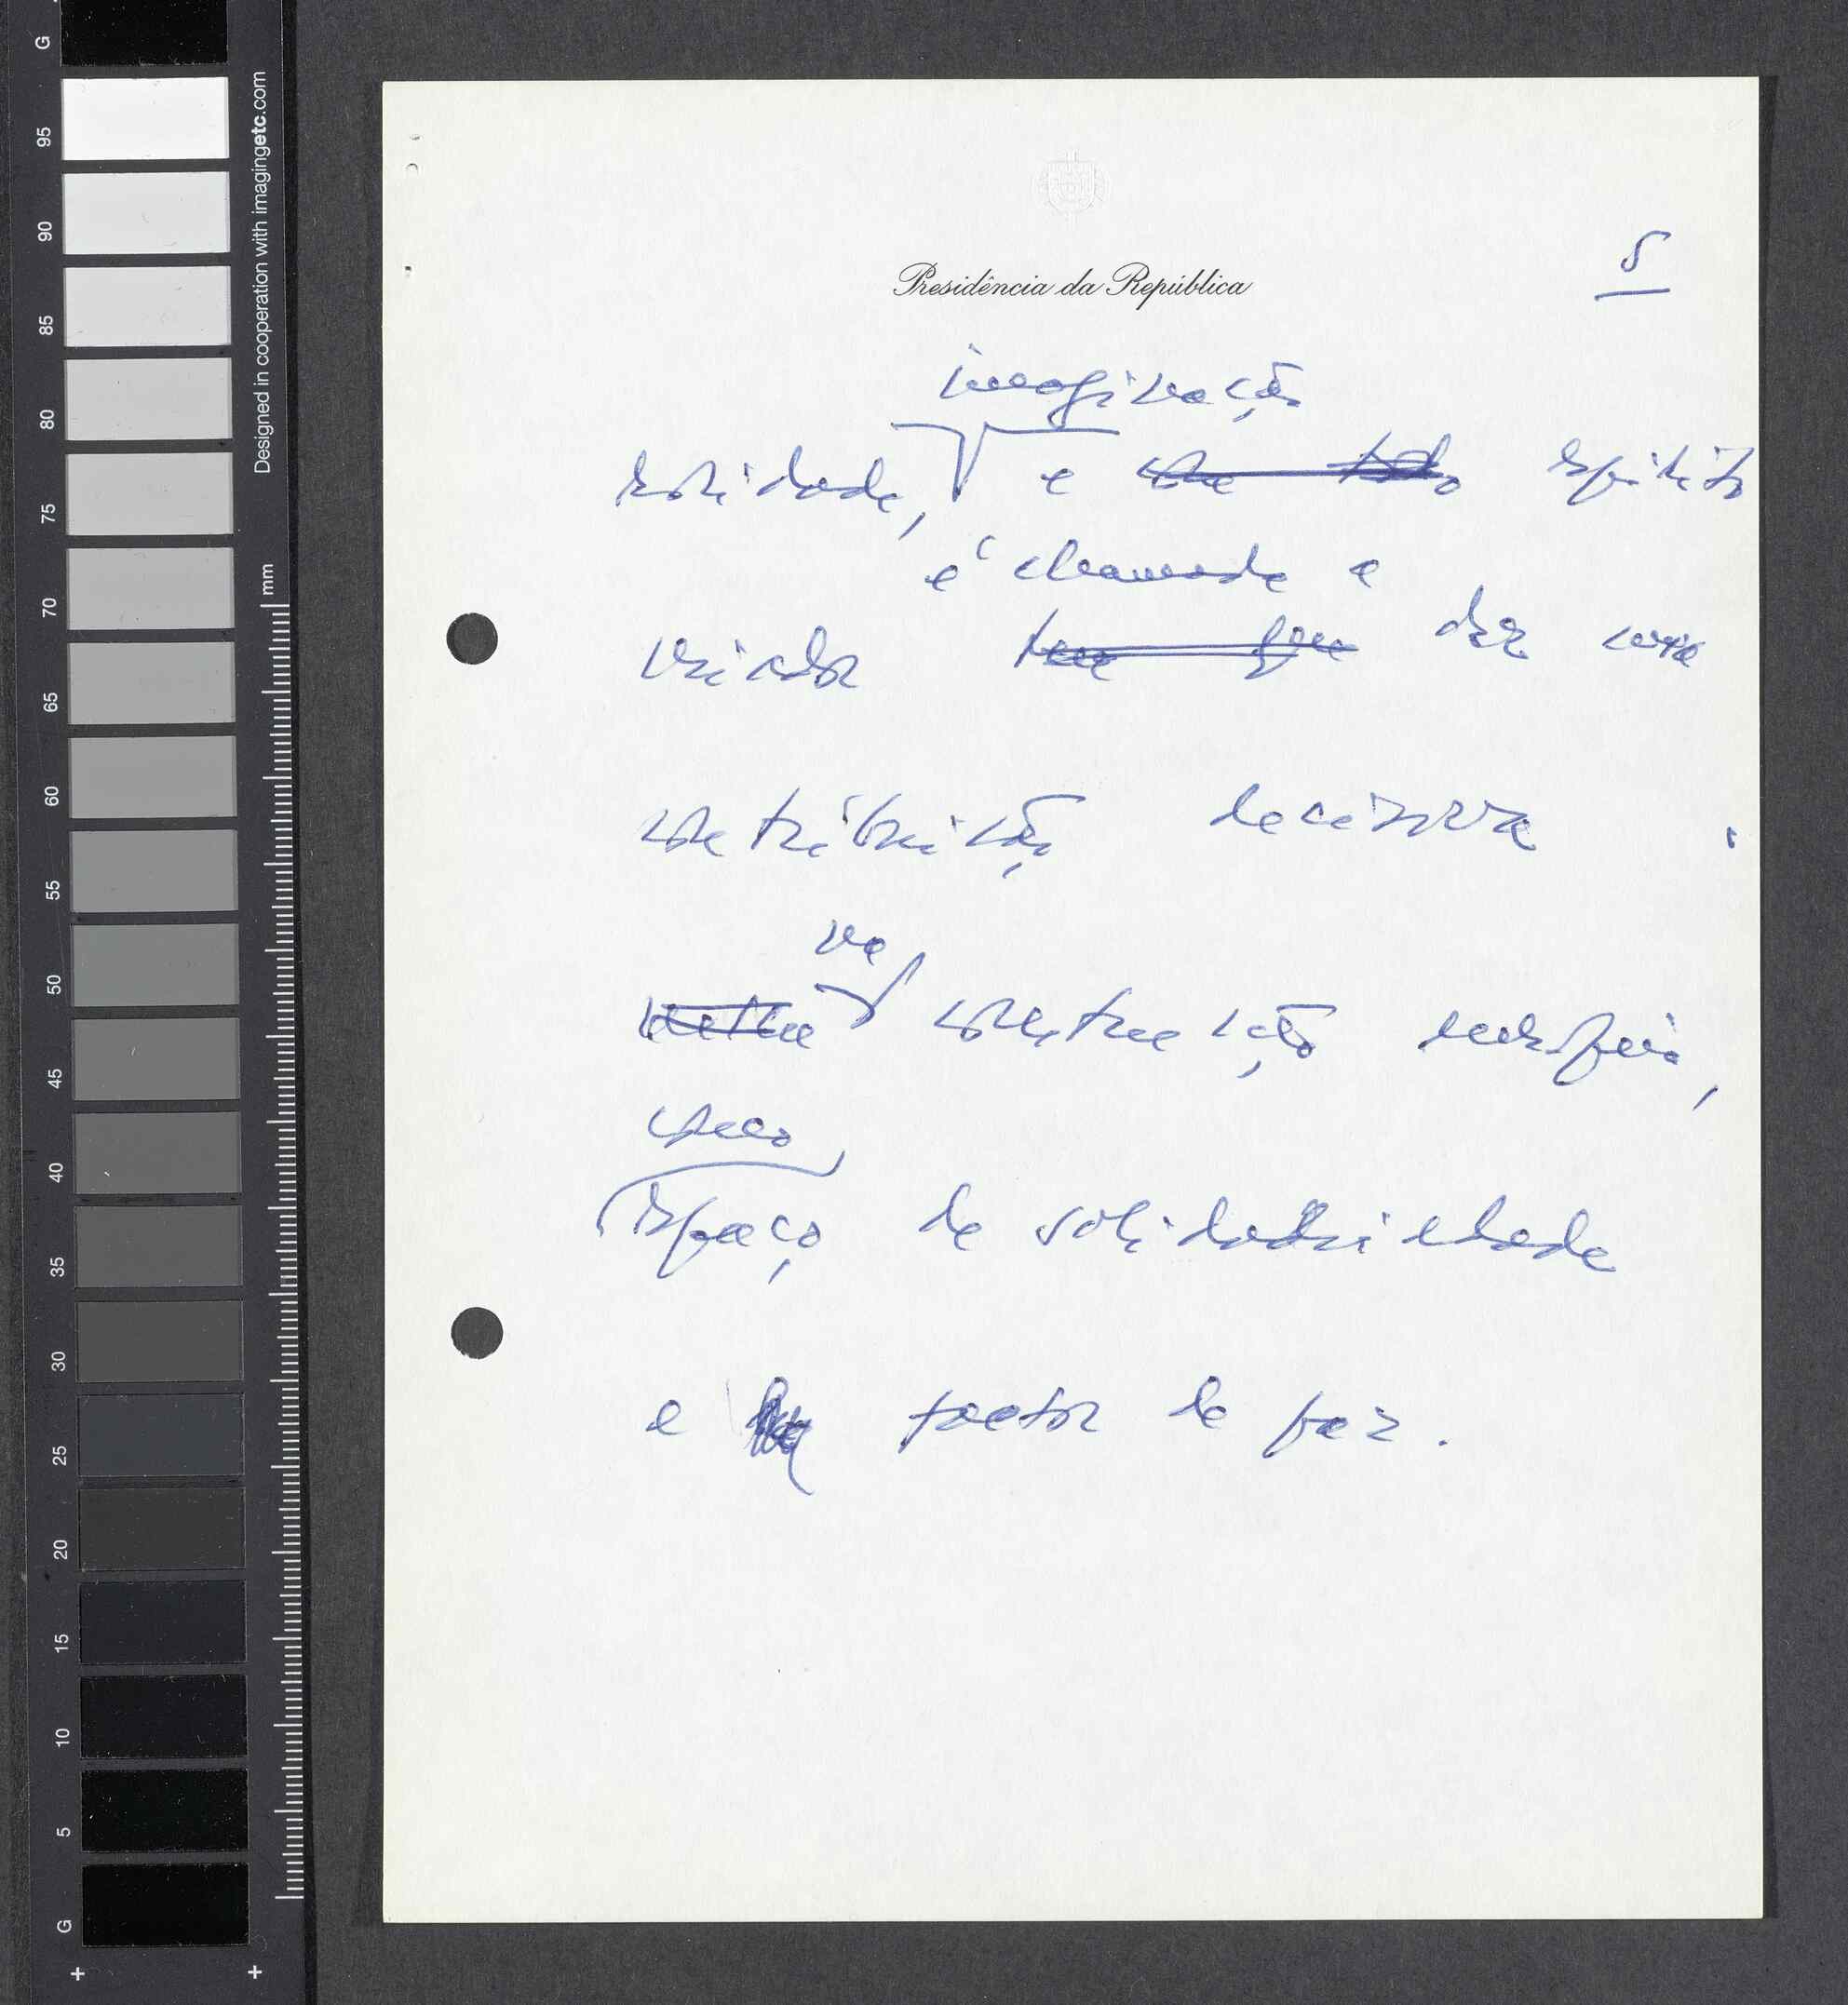 G
95
90
85
80
75
70
65
60
55
50
45
40
35
30
25
20
15
10
5
G
Designed in cooperation with imagingetc.com
mm
Presidência da República
5
imaginação
e espírito
é chamada a
criador tem que dar uma
contribuição decisiva
na
construção europeia,
como
espaço de solidadriedade
e factor de paz.